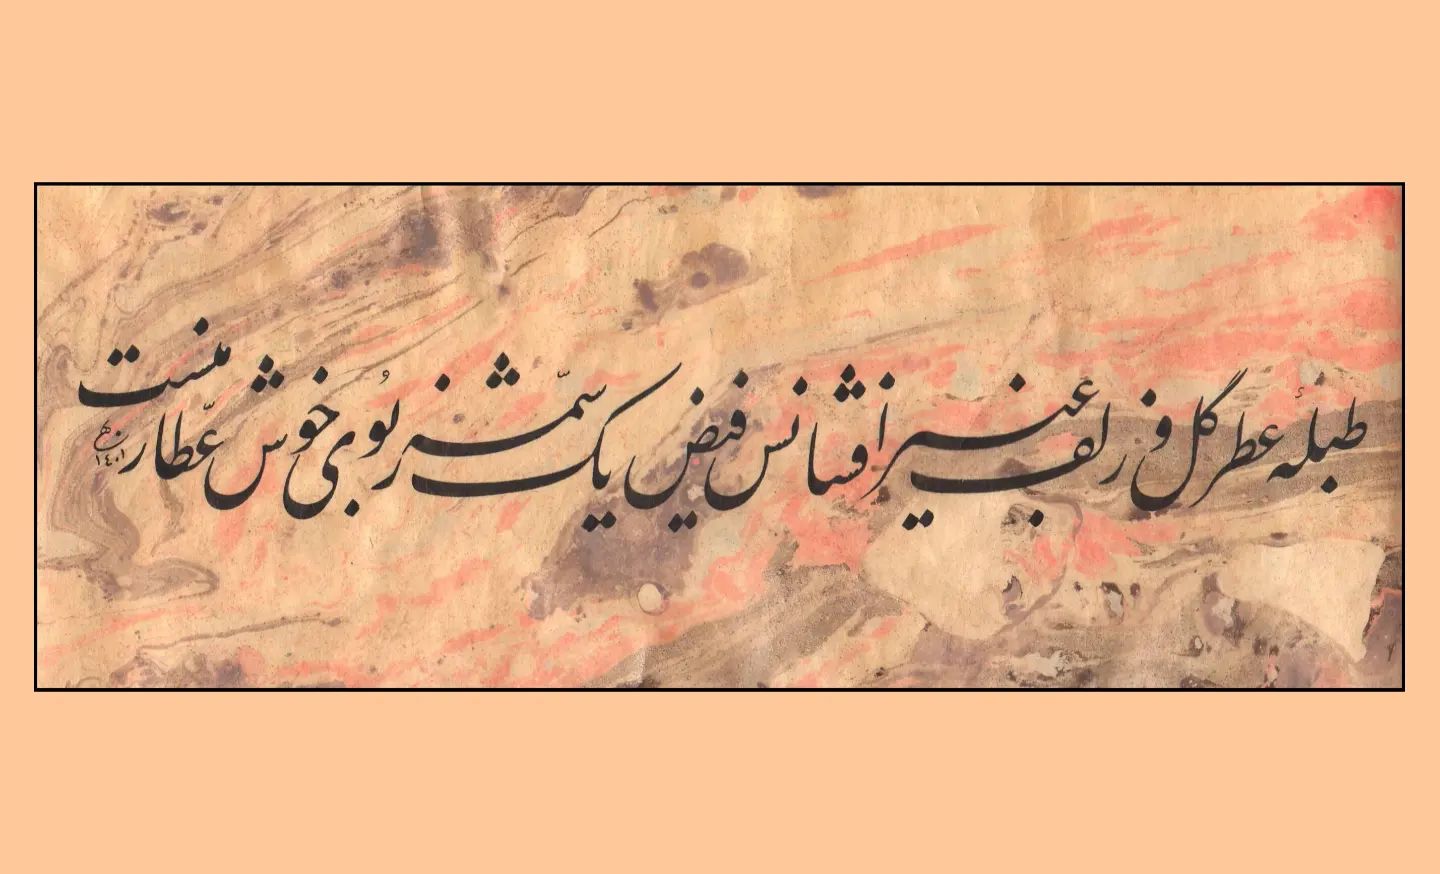 طبلهٔ عطر گل و زلف عبیر افشانش فیض یک شمّه ز بُوی خوش عطّار منست
۱۴۰۱